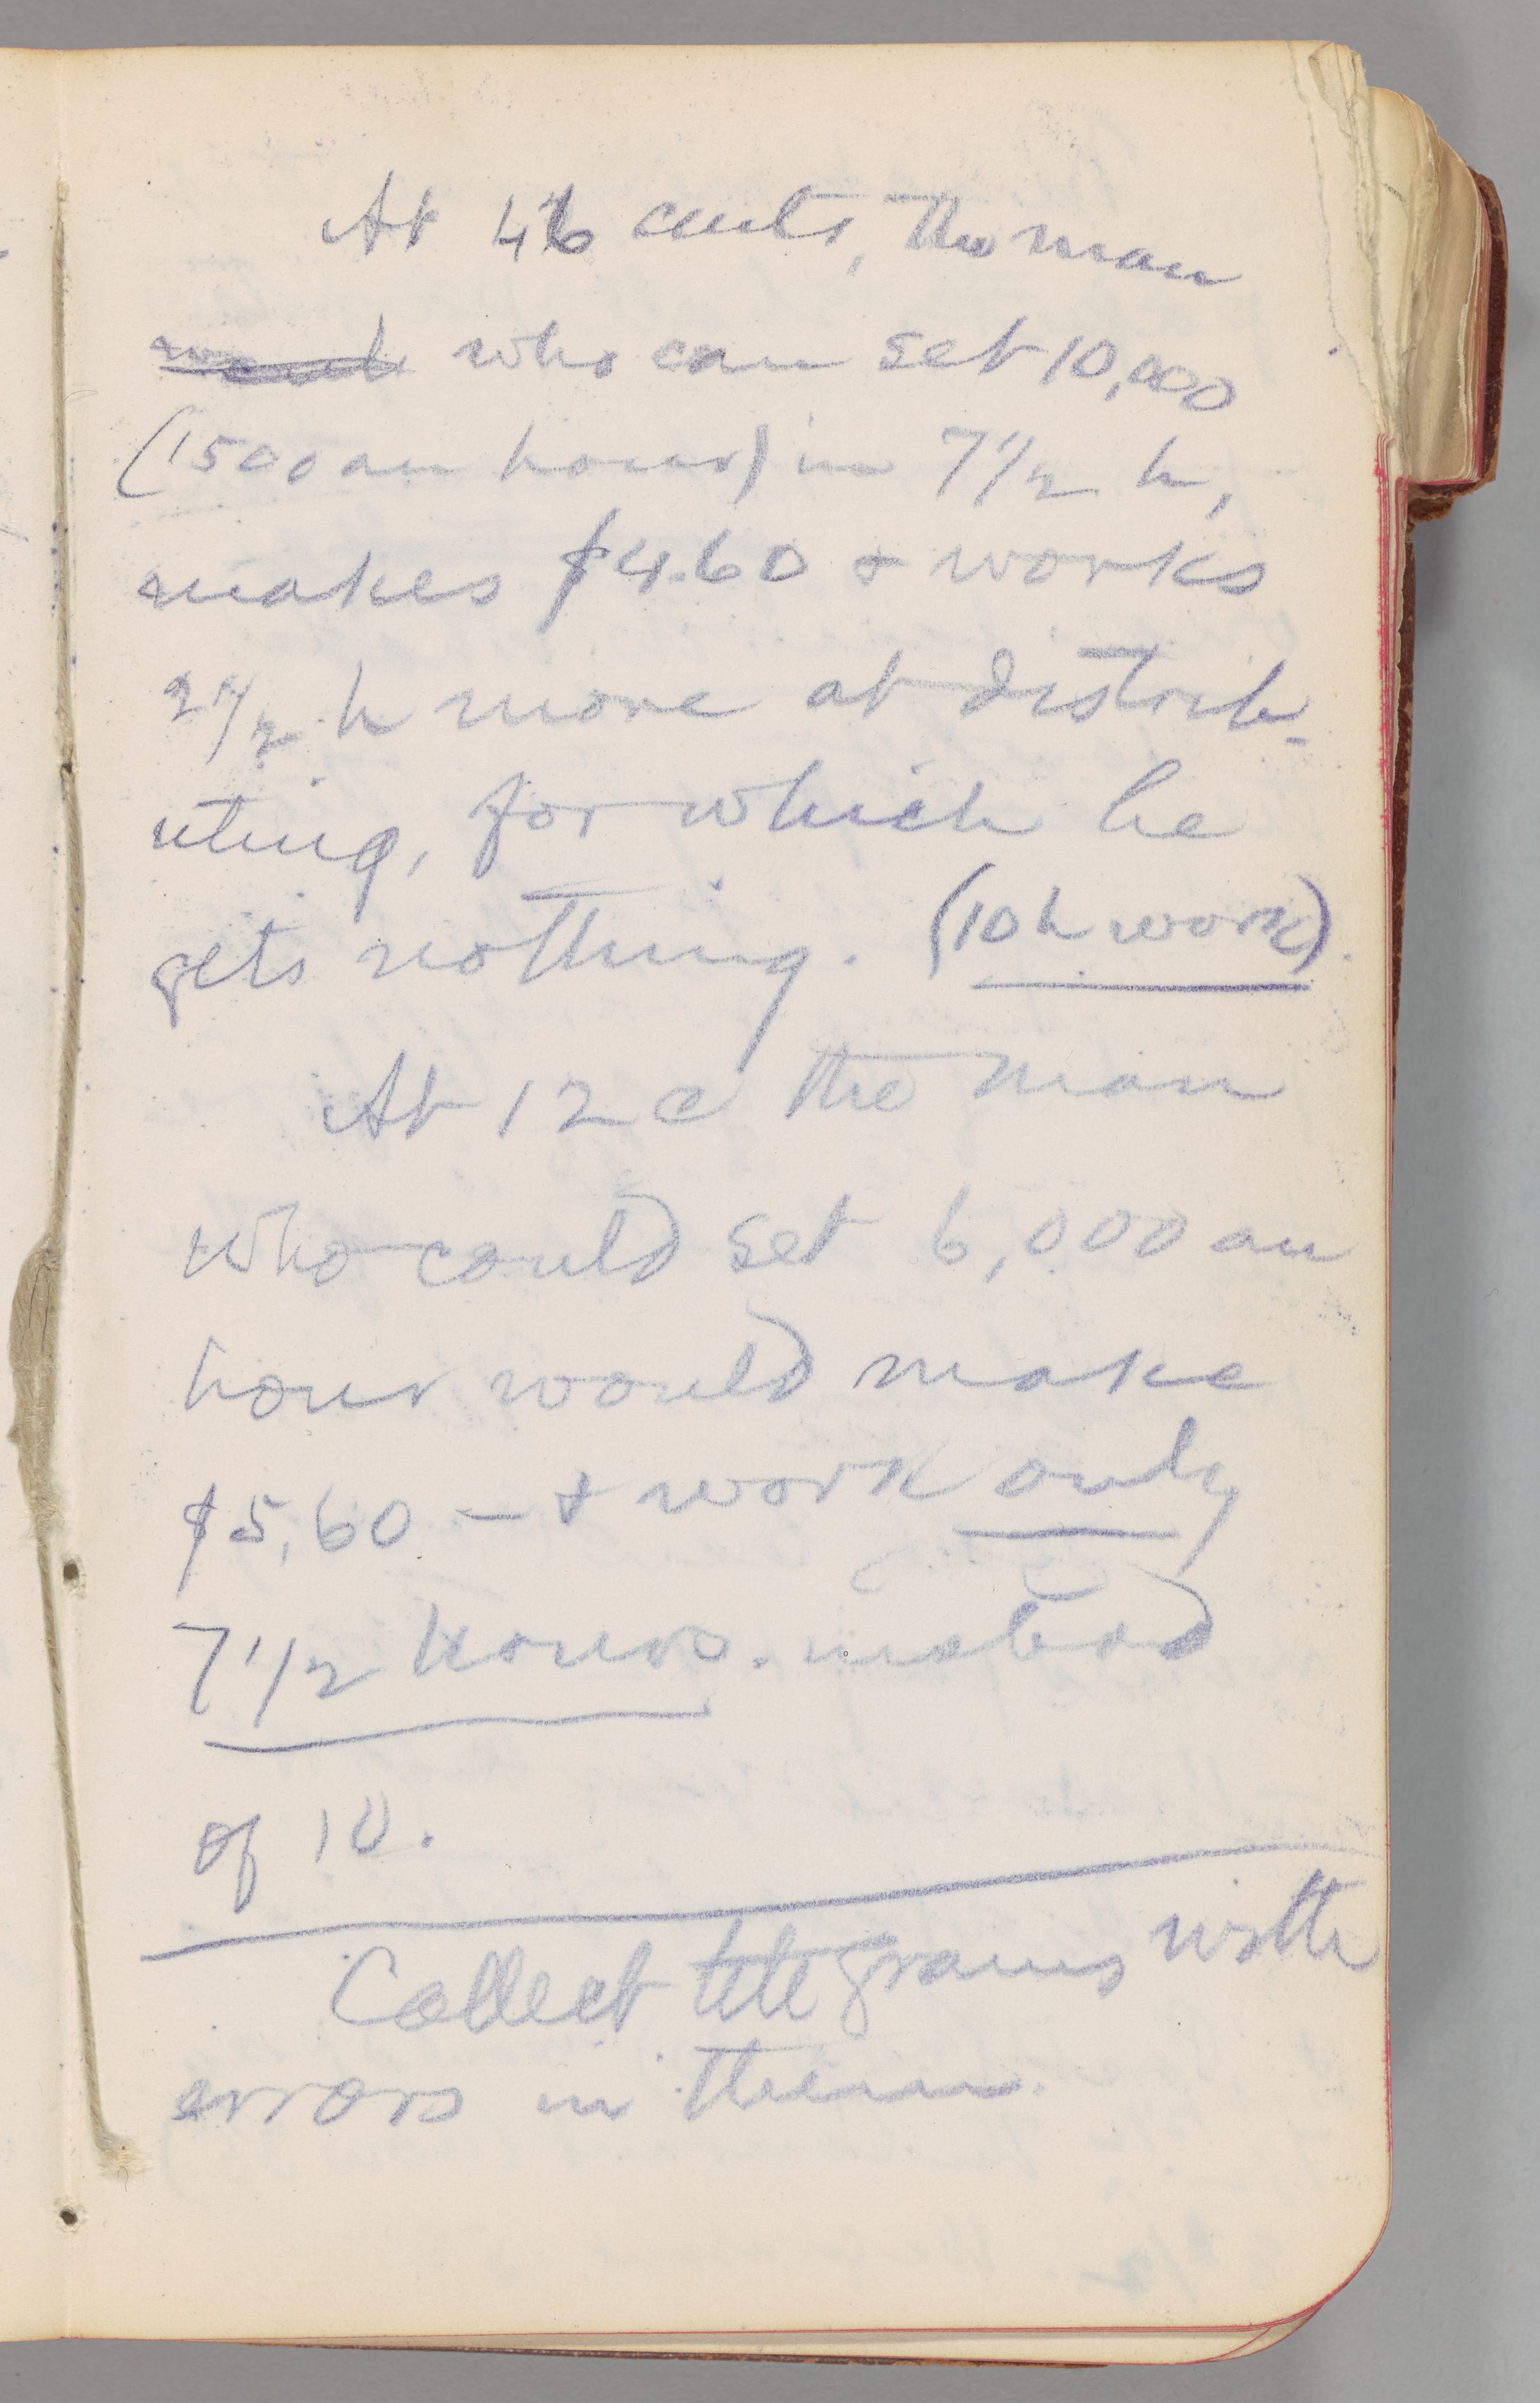 At 46 cents, the man
who can set 10,000
(1500 an hour) in 7 1/2 h,
makes $4.60 & works
2 1/2 h more at distrib-
uting, for which he
gets nothing. (10 h work).
At 12 c the man
who could set 6,000 an
hour would make
$5,60 – & work only
7 1/2 hours. instead
of 10.
Collect telegrams with
errors in them.